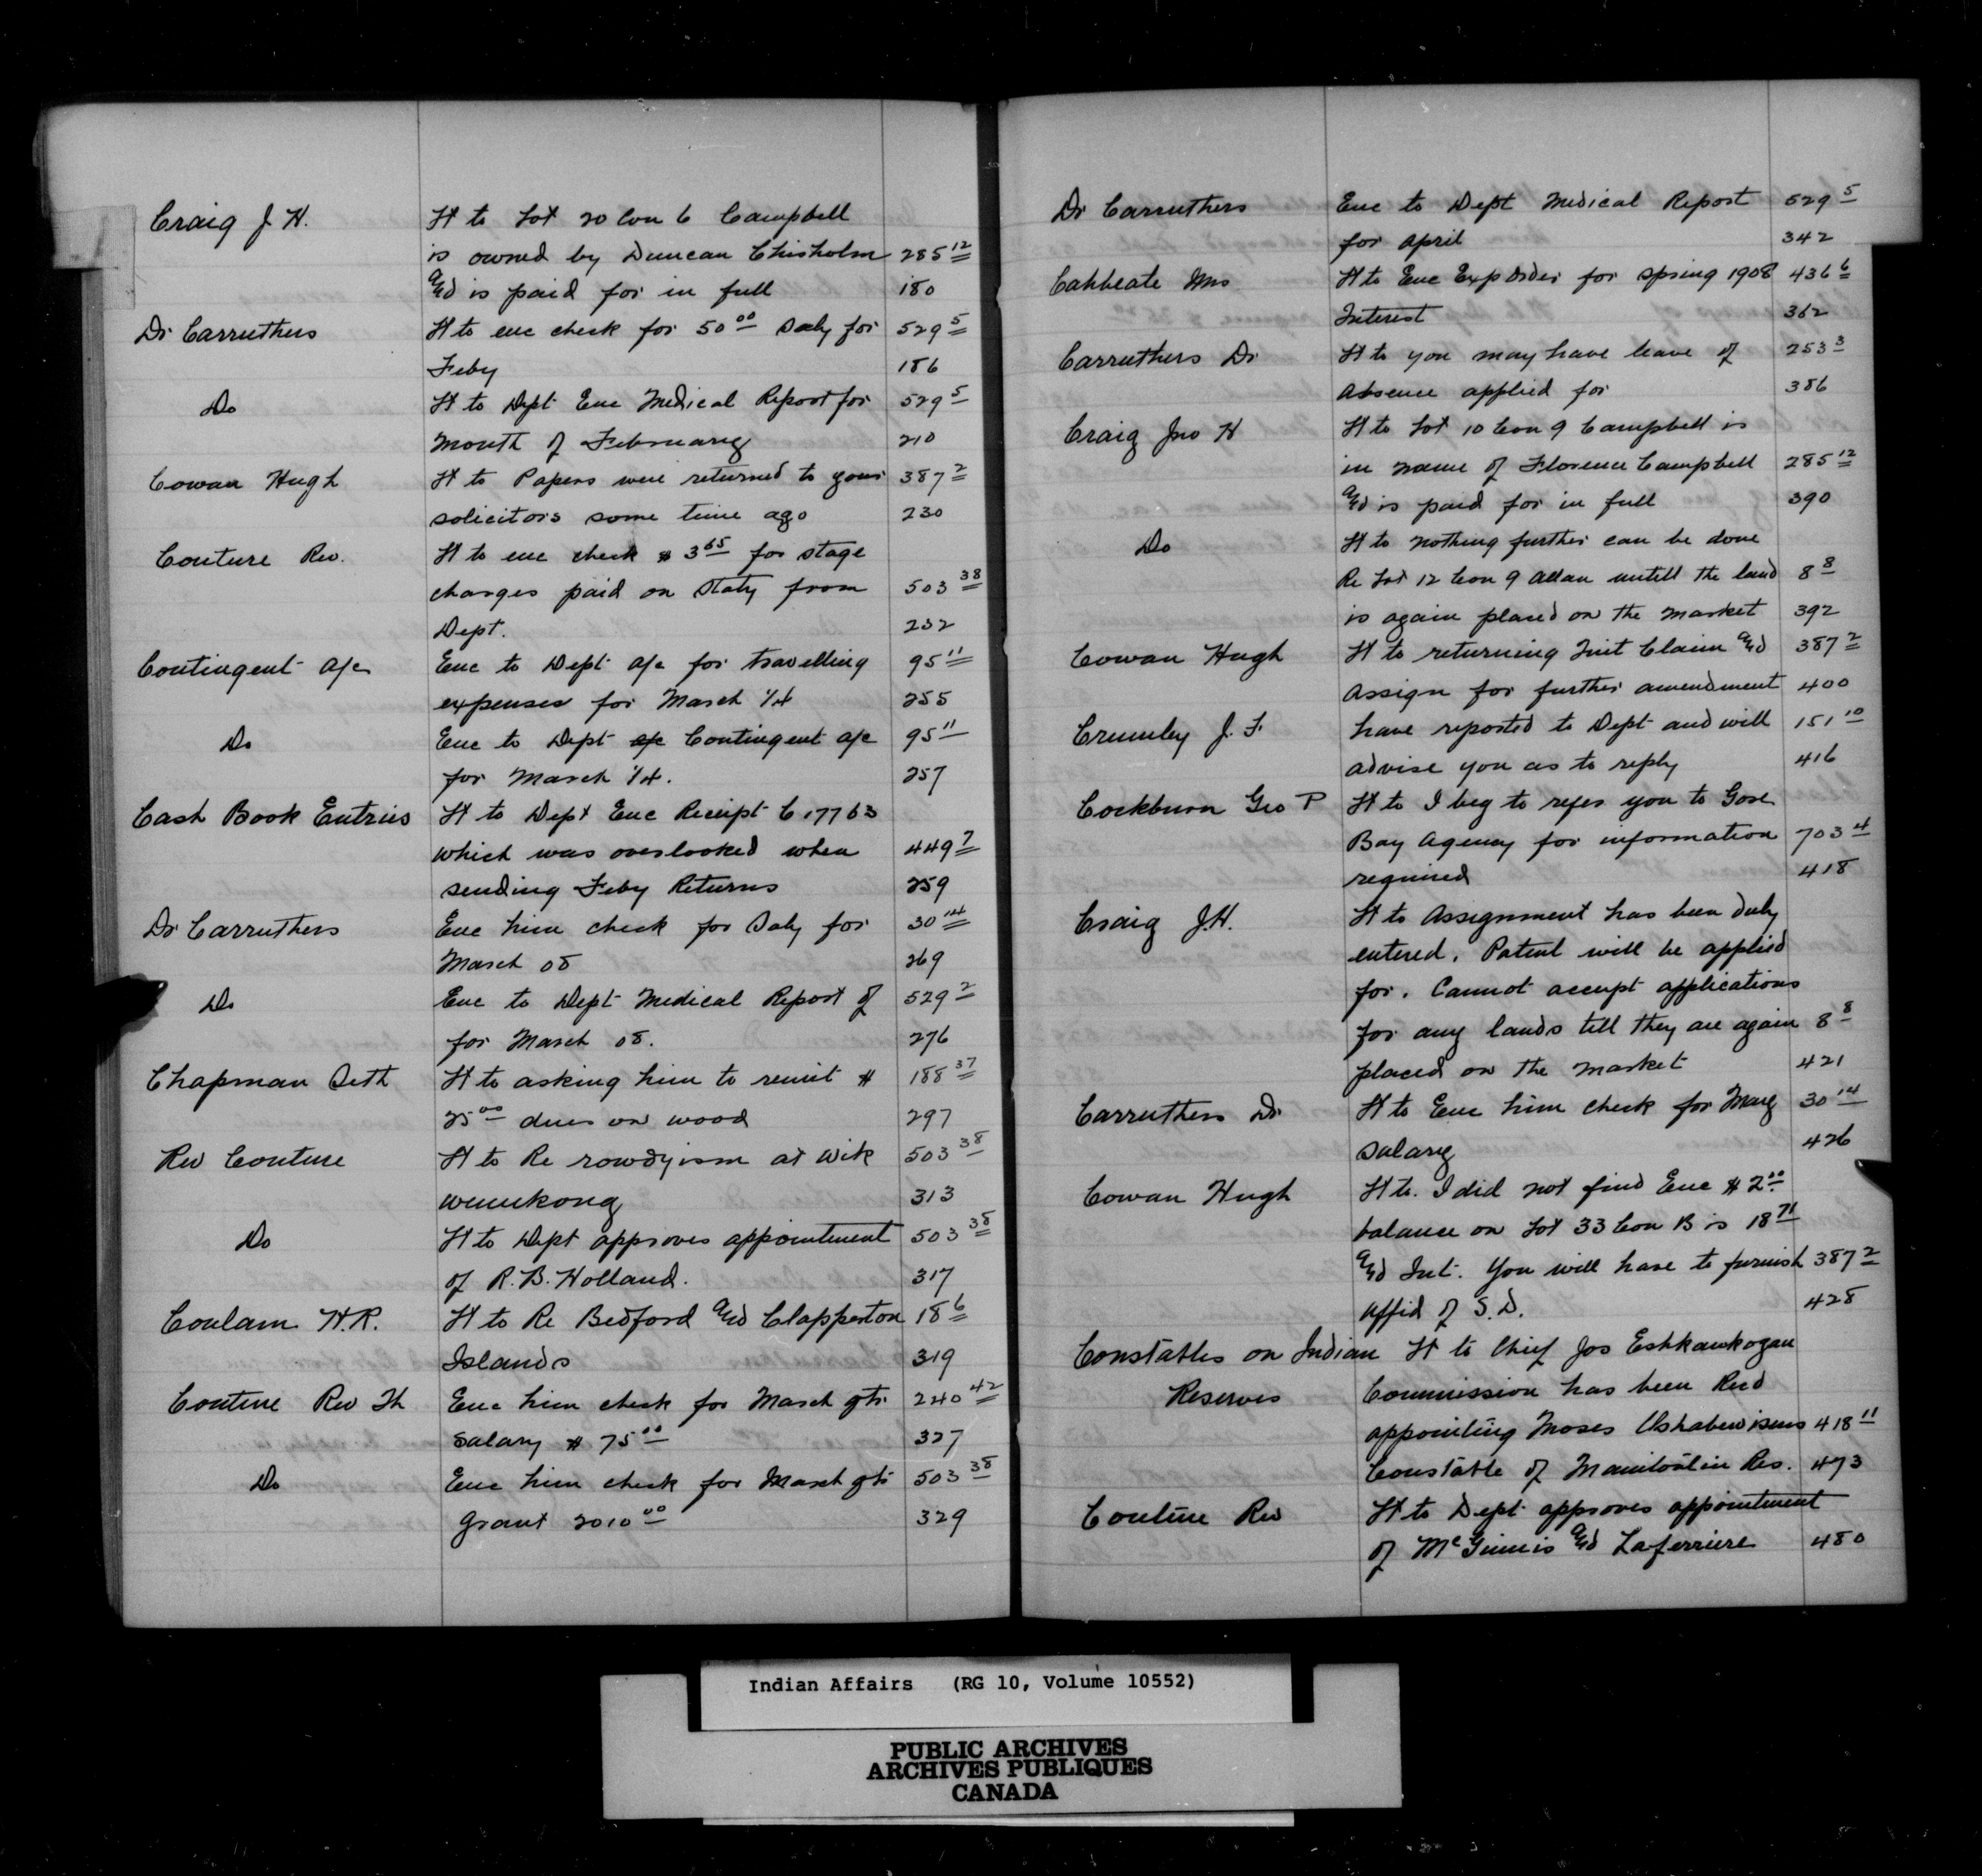 Craig J H. Ht to Lot 20 Con 6 Campbell
is owned by Duncan Chisholm 285 12
and is paid for in full 180
Dr Carruthers Ht to enc check for 50 00 Saly for 529 5
Feby 186
Do Ht to Dept Enc Medical Report for 529 5
Month of February 210
Cowan Hugh Ht to Papers were returned to your 387 2
solicitors some time ago 230
Couture Rev. Ht to enc check $ 3 65 for stage
charges paid on Staty from 503 38
Dept. 232
Contingent a/c Enc to Dept a/c for travelling 95 11
expenses for March 1/4 255
Do Enc to Dept Contingent a/c 95 11
for March 1/4. 257
Cash Book Entries Ht to Dept Enc Receipt C 17763
which was overlooked when 449 7
sending Feby Returns 259
Dr Carruthers Enc him check for Saly for 30 14
March 08 269
Do Enc to Dept Medical Report of 529 2
for March 08. 276
Chapman Seth Ht to asking him to remit $ 188 37
25 00 dues on wood 297
Rev Couture Ht to Re rowdyism at Wik 503 38
wemikong 313
Do Ht to Dept approves appointment 503 38
of R. B. Holland. 317
Coulam H.R. Ht to Re Bedford and Clapperton 18 6
Islands 319
Couture Rev Th Enc him check for March qtr 240 42
Salary $ 75 00 327
Do Enc him check for March qtr 503 38
grant 2010 00 329
Dr Carruthers Enc to Dept Medical Report 529 5
for April 342
Cahbeate Mrs Ht to Enc Exp Order for Spring 1908 436 6
Interest 362
Carruthers Dr Ht to you may have leave of 253 3
absence applied for 386
Craig Jno H Ht to Lot 10 Con 9 Campbell is
in name of Florence Campbell 285 12
and is paid for in full 390
Do Ht to nothing further can be done
Re Lot 12 Con 9 Allan untill the land 8 8
is again placed on the market 392
Cowan Hugh Ht to returning Quit Claim and 387 2
Assign for further amendment 400
Crumley J. F. have reported to Dept and will 151 10
advise you as to reply 416
Cockburn Geo P Ht to I beg to refer you to Gore
Bay Agency for information 703 4
required 418
Craig J.H. Ht to Assignment has been duly
entered. Patent will be applied
for. Cannot accept applications
for any lands till they are again 8 8
placed on the market 421
Carruthers Dr Ht to Enc him check for May 30 14
salary 426
Cowan Hugh Ht to. I did not find Enc $ 2 00
balance on Lot 33 Con B is 18 71
and Int. You will have to furnish 387 2
Affid of S.D. 428
Constables on Indian Ht to Chief Jos Eshkawkogan
Reserves Commission has been Recd
appointing Moses 418 11
Constable of Manitoulin Res. 473
Couture Rev Ht to Dept approves appointment
of McGinnis and Laferriere 480
Indian Affairs (RG 10, Volume 10552)
PUBLIC ARCHIVES
ARCHIVES PUBLIQUES
CANADA